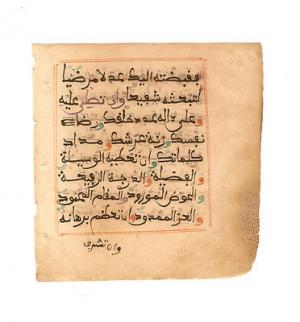 وقبضته اليك عدلا مرضيا
لتبعثه شفيعا وان تصلي عليه
وعلى اله عدد خلقك ورضاء
نفسك وزنة عرشك ومداد
كلماتك وان تعطيه الوسيلة
والفضيلة والدرجة الرفيعة
والحوض المورود والمقام المحمود
والعز الممدود وان تعظم برهانه
وان تشرف